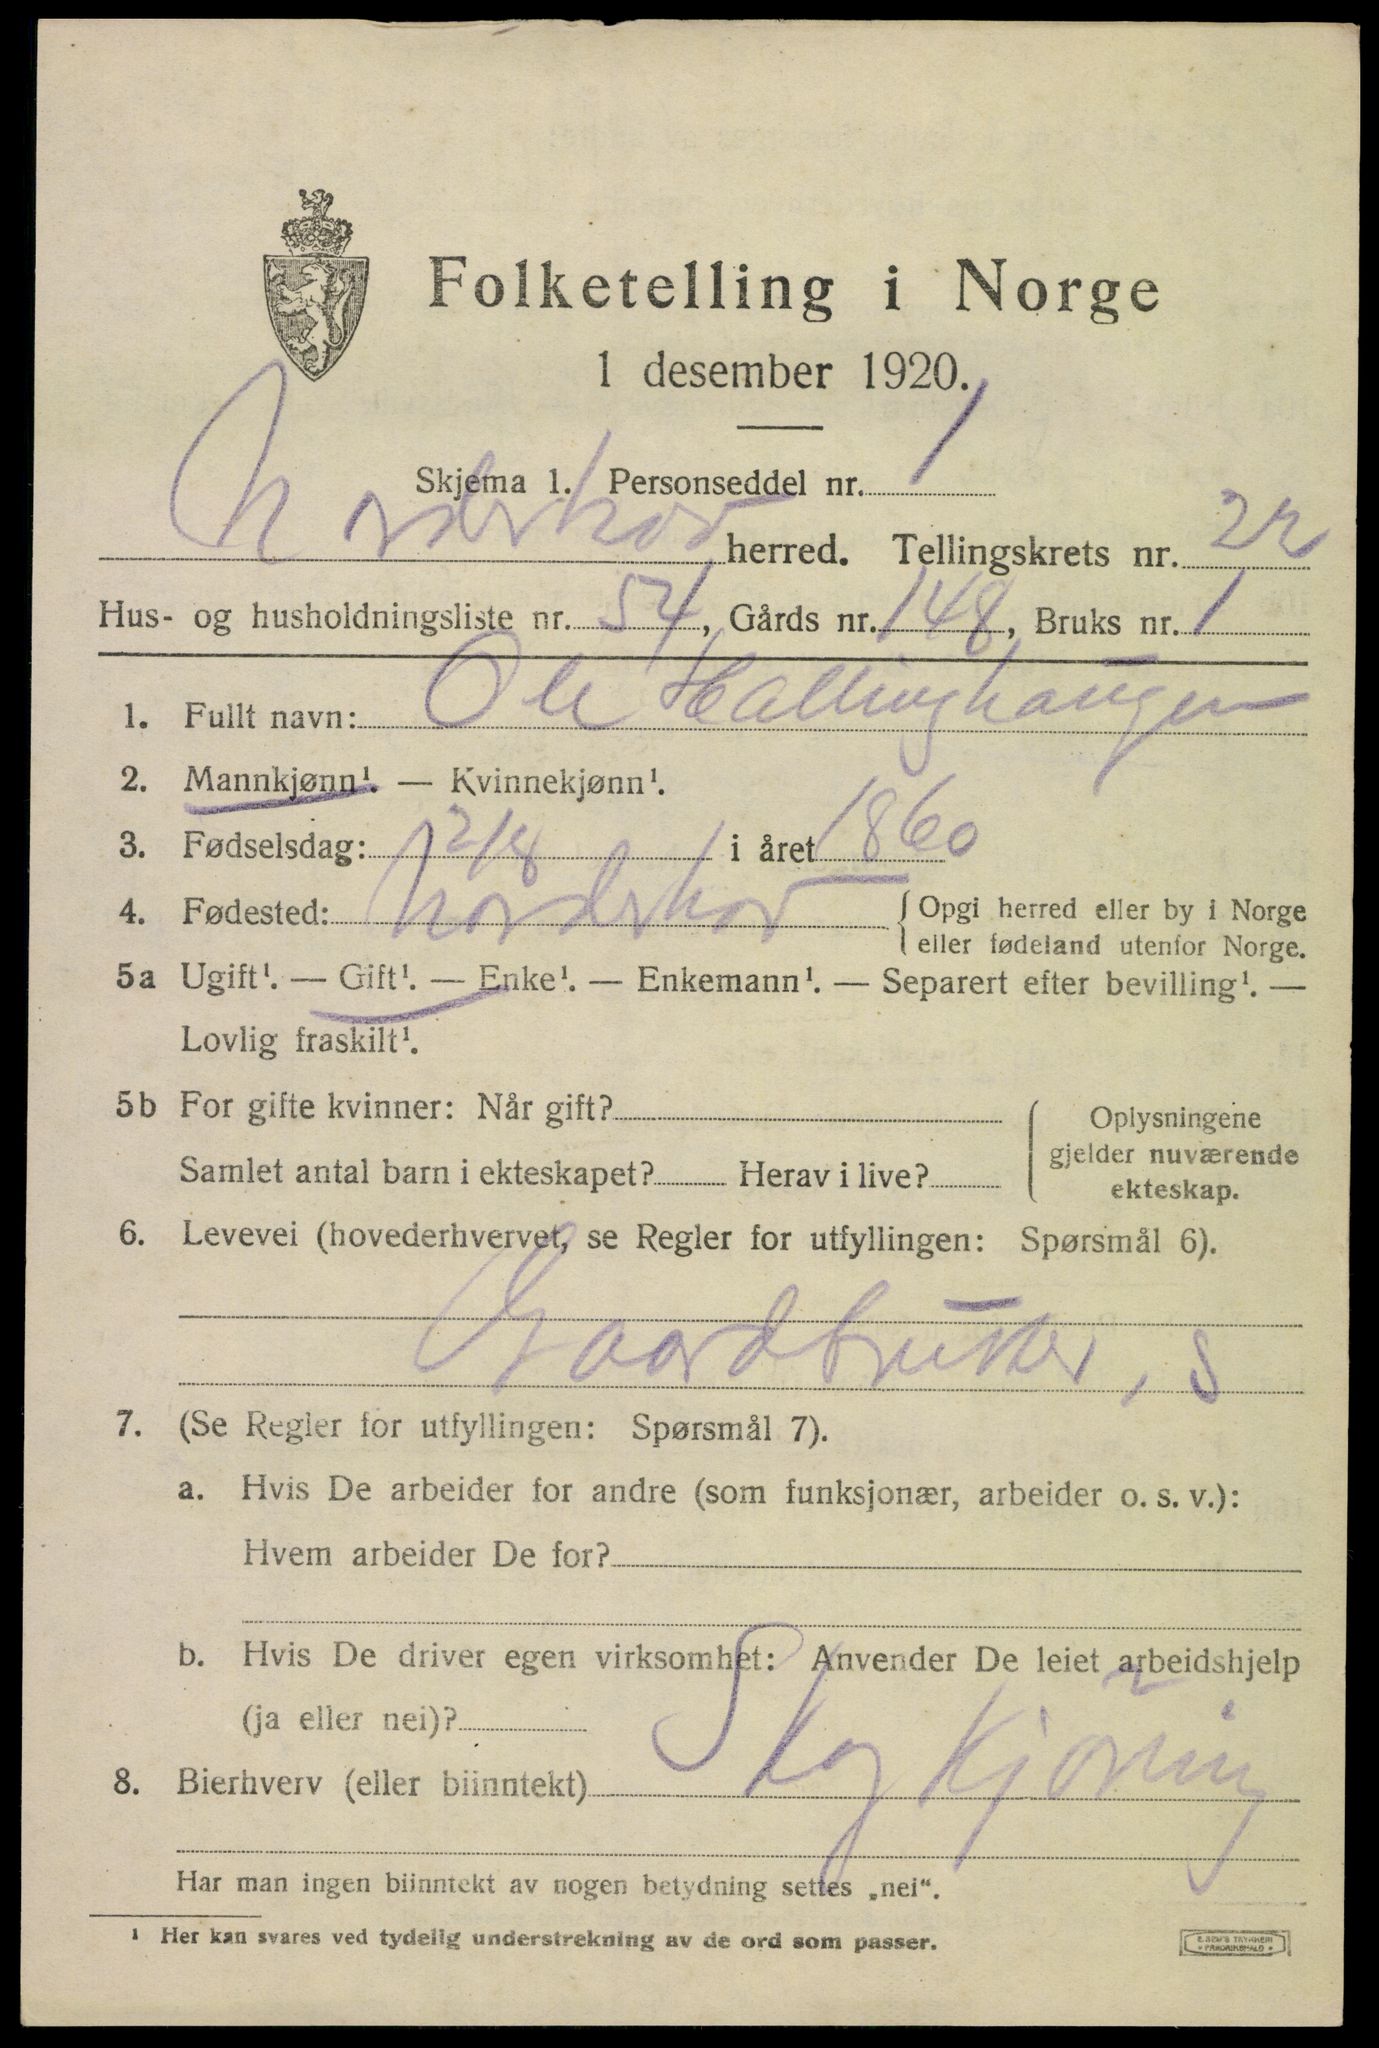 Folketelling i Norge
1 desember 1920.
Skjema 1. Personseddel nr. 1
Norderhov herred. Tellingskrets nr. 22
Hus- og husholdningsliste nr. 54, Gårds nr. 148, Bruks nr. 1
1. Fullt navn: Ole Hallinghaugen
2. Mannkjønn¹. — Kvinnekjønn¹.
3. Fødselsdag: 2/8 i året 1860
4. Fødested: Norderhov { Opgi herred eller by i Norge
eller fødeland utenfor Norge.
5a Ugift¹. — Gift¹. — Enke¹. — Enkemann¹. — Separert efter bevilling¹. —
Lovlig fraskilt¹.
5b For gifte kvinner: Når gift?
Samlet antal barn i ekteskapet? Herav i live?
{ Oplysningene
gjelder nuværende
ekteskap.
6. Levevei (hovederhvervet, se Regler for utfyllingen: Spørsmål 6).
Gaardbruker, s
7. (Se Regler for utfyllingen: Spørsmål 7).
a. Hvis De arbeider for andre (som funksjonær, arbeider o. s. v.):
Hvem arbeider De for?
b. Hvis De driver egen virksomhet: Anvender De leiet arbeidshjelp
(ja eller nei)?
8. Bierhverv (eller biinntekt) Skogkjøring
Har man ingen biinntekt av nogen betydning settes „nei“.
¹ Her kan svares ved tydelig understrekning av de ord som passer.
E. SEM'S TRYKKERI
FREDRIKSHALD